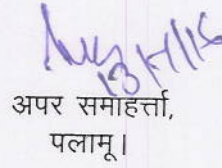 13/7/15
अपर समाहर्त्ता,
पलामू।